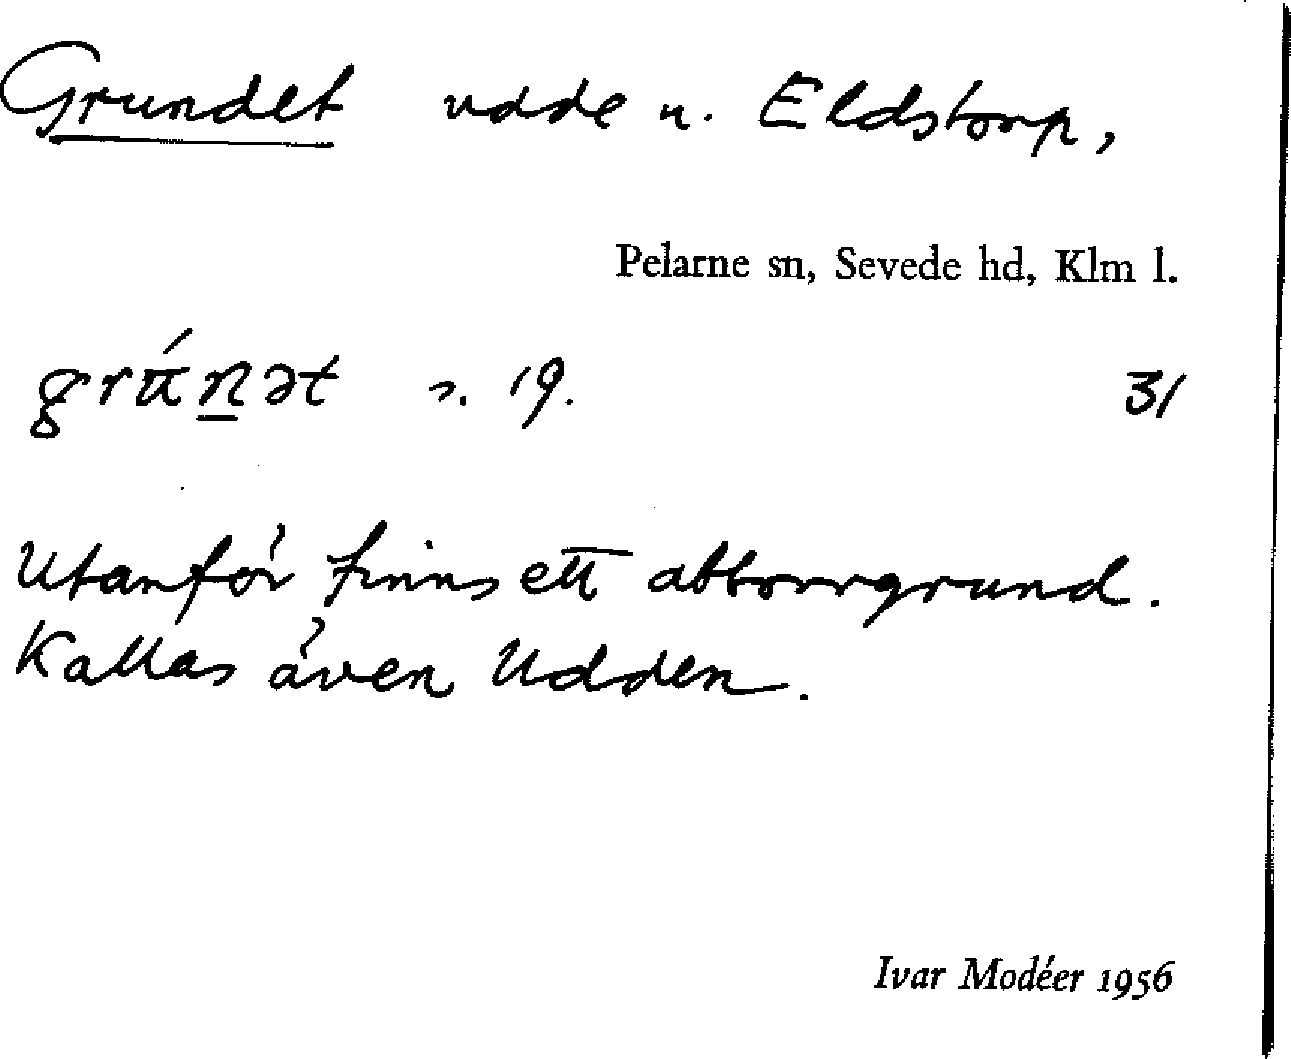 Grundet udde u. Eldstorp,
Pelarne sn, Sevede hd, Klm l.
grúnət s. 19. 31
Utanför finns ett abborrgrund.
Kallas även Udden.
Ivar Modéer 1956